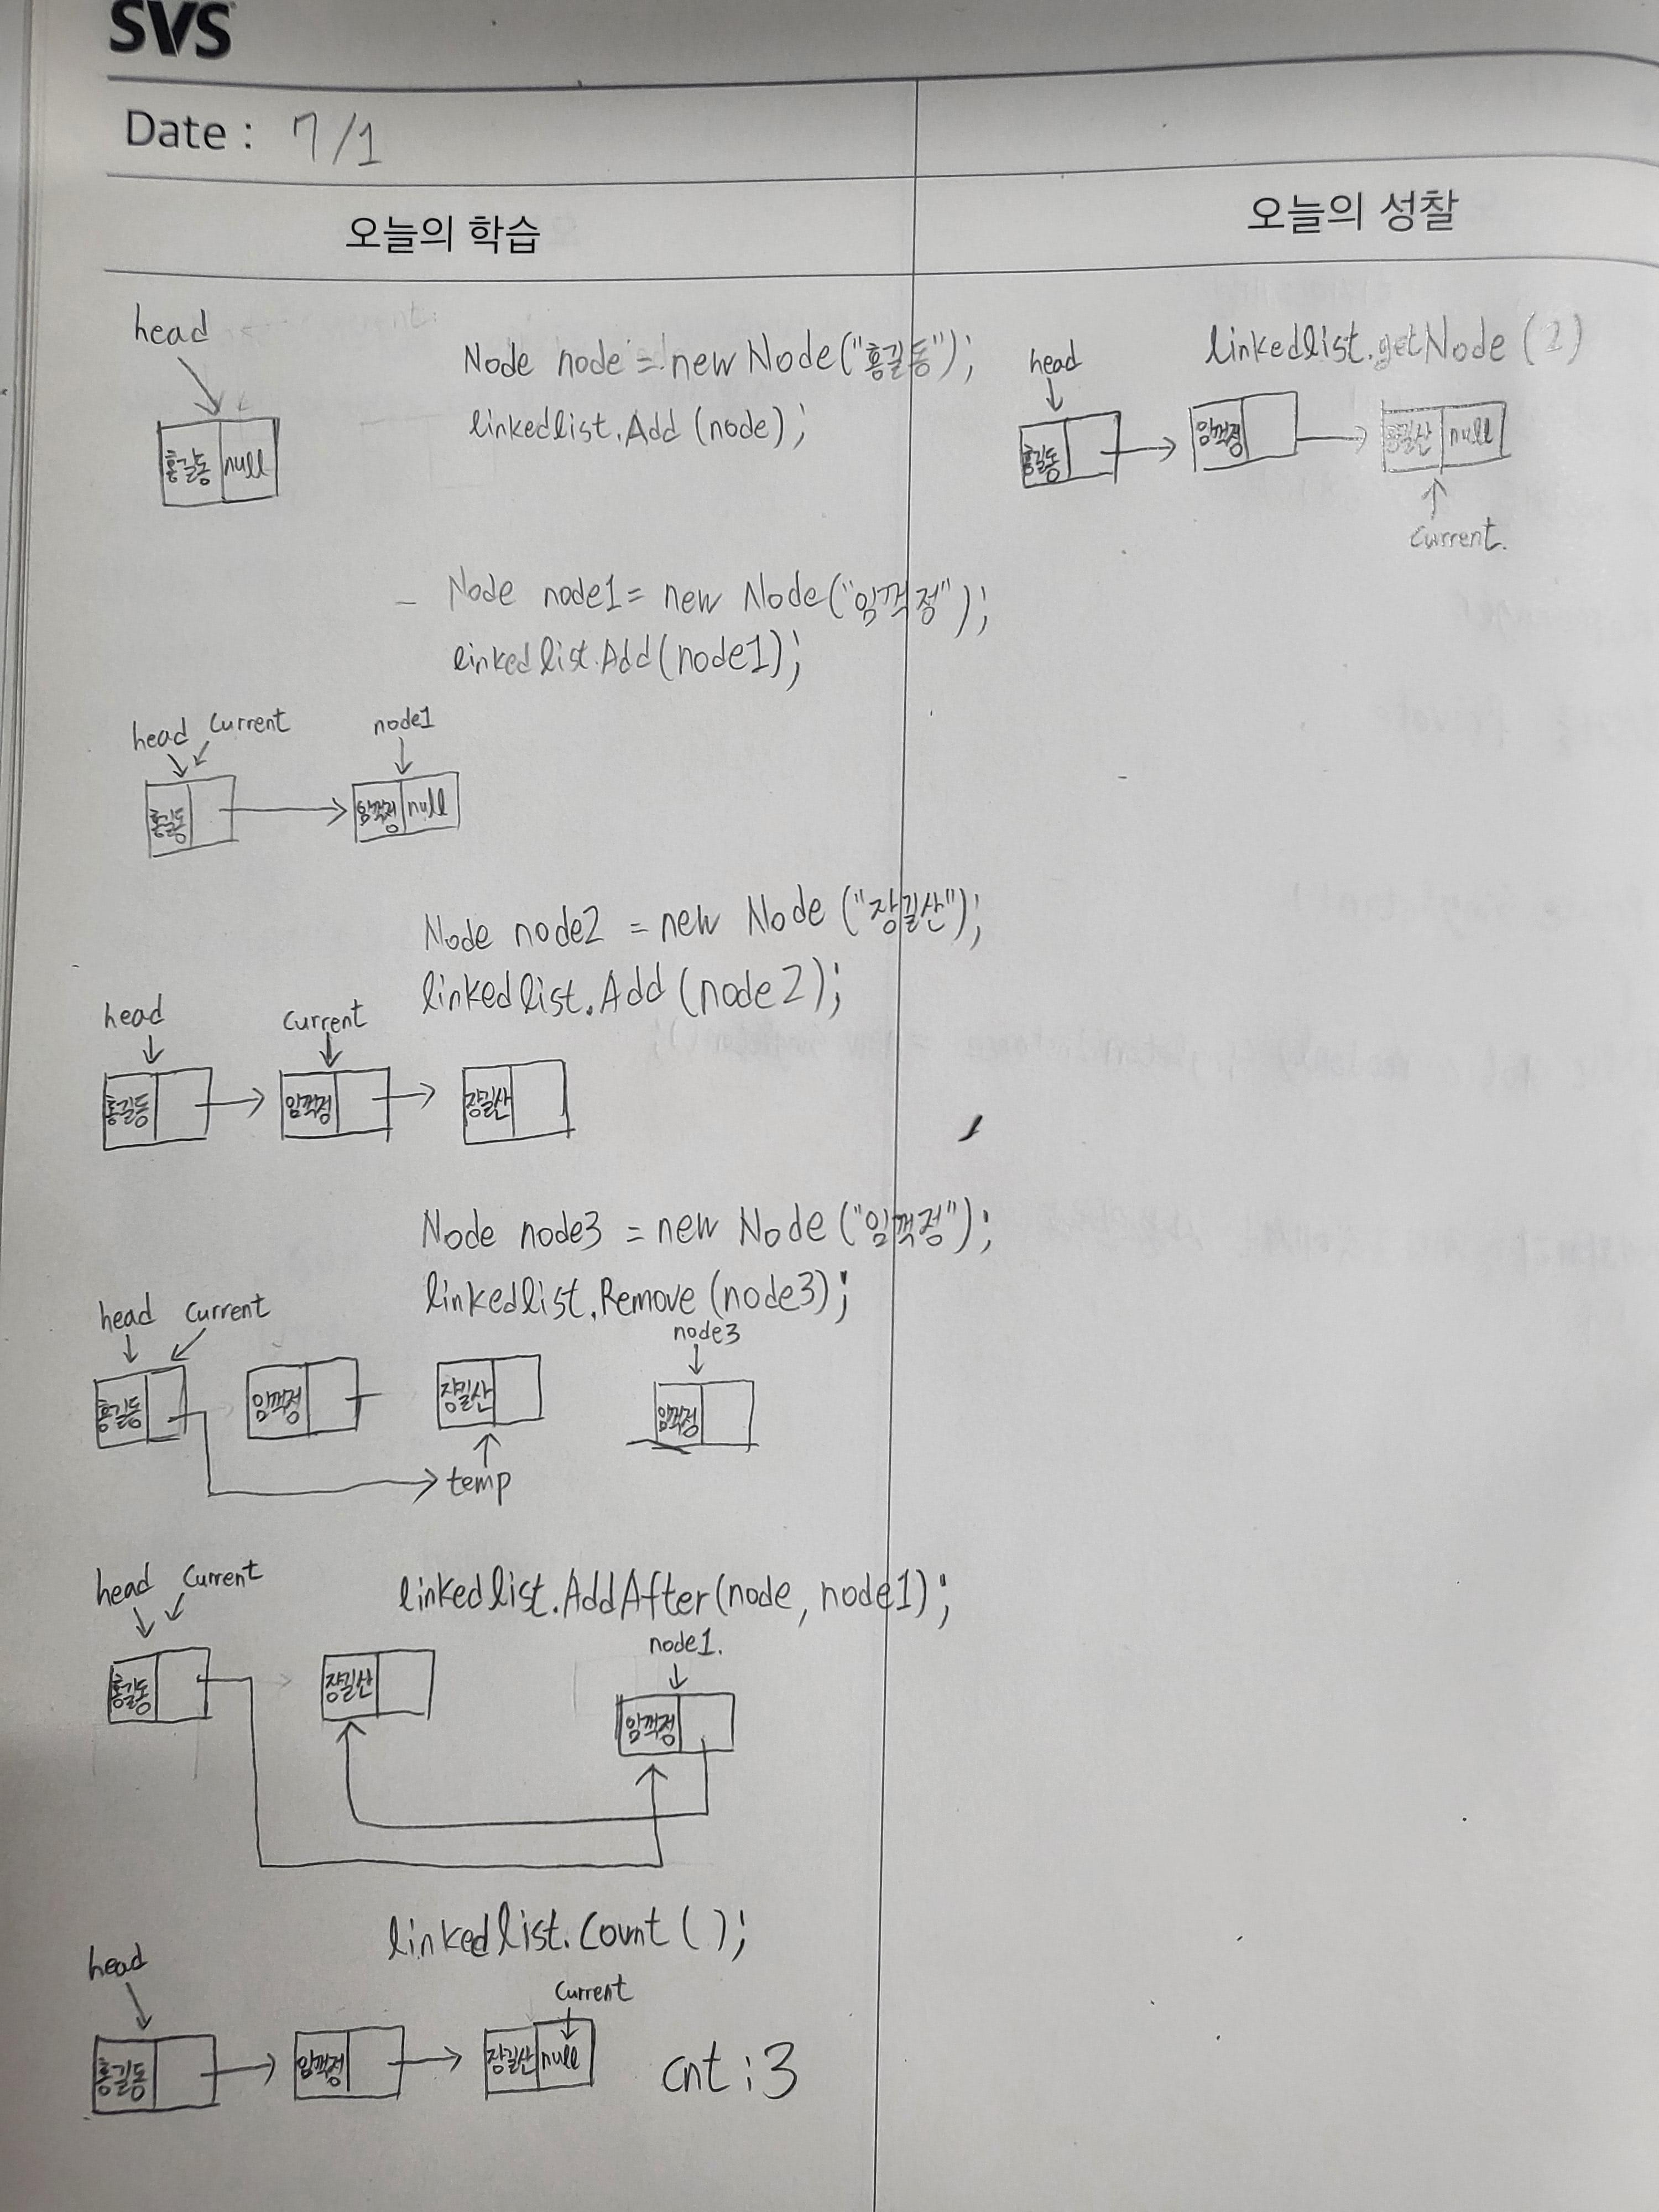 SVS
Date : 7/1
오늘의 학습
오늘의 성찰
head
Node node = new Node("홍길동");
linkedlist.Add (node);
홍길동 null
Node node1 = new Node("임꺽정");
linkedlist.Add(node1);
head current node1
홍길동 임꺽정 null
Node node2 = new Node ("장길산");
linkedlist.Add (node2);
head current
홍길동 임꺽정 장길산
Node node3 = new Node ("임꺽정");
linkedlist.Remove (node3);
head current node3
홍길동 임꺽정 장길산 임꺽정
temp
linkedlist.AddAfter(node, node1);
head current node1.
홍길동 장길산 임꺽정
linkedlist.Count ( );
head current
홍길동 임꺽정 장길산 null cnt : 3
linkedlist.getNode (2)
head
홍길동 임꺽정 장길산 null
current.